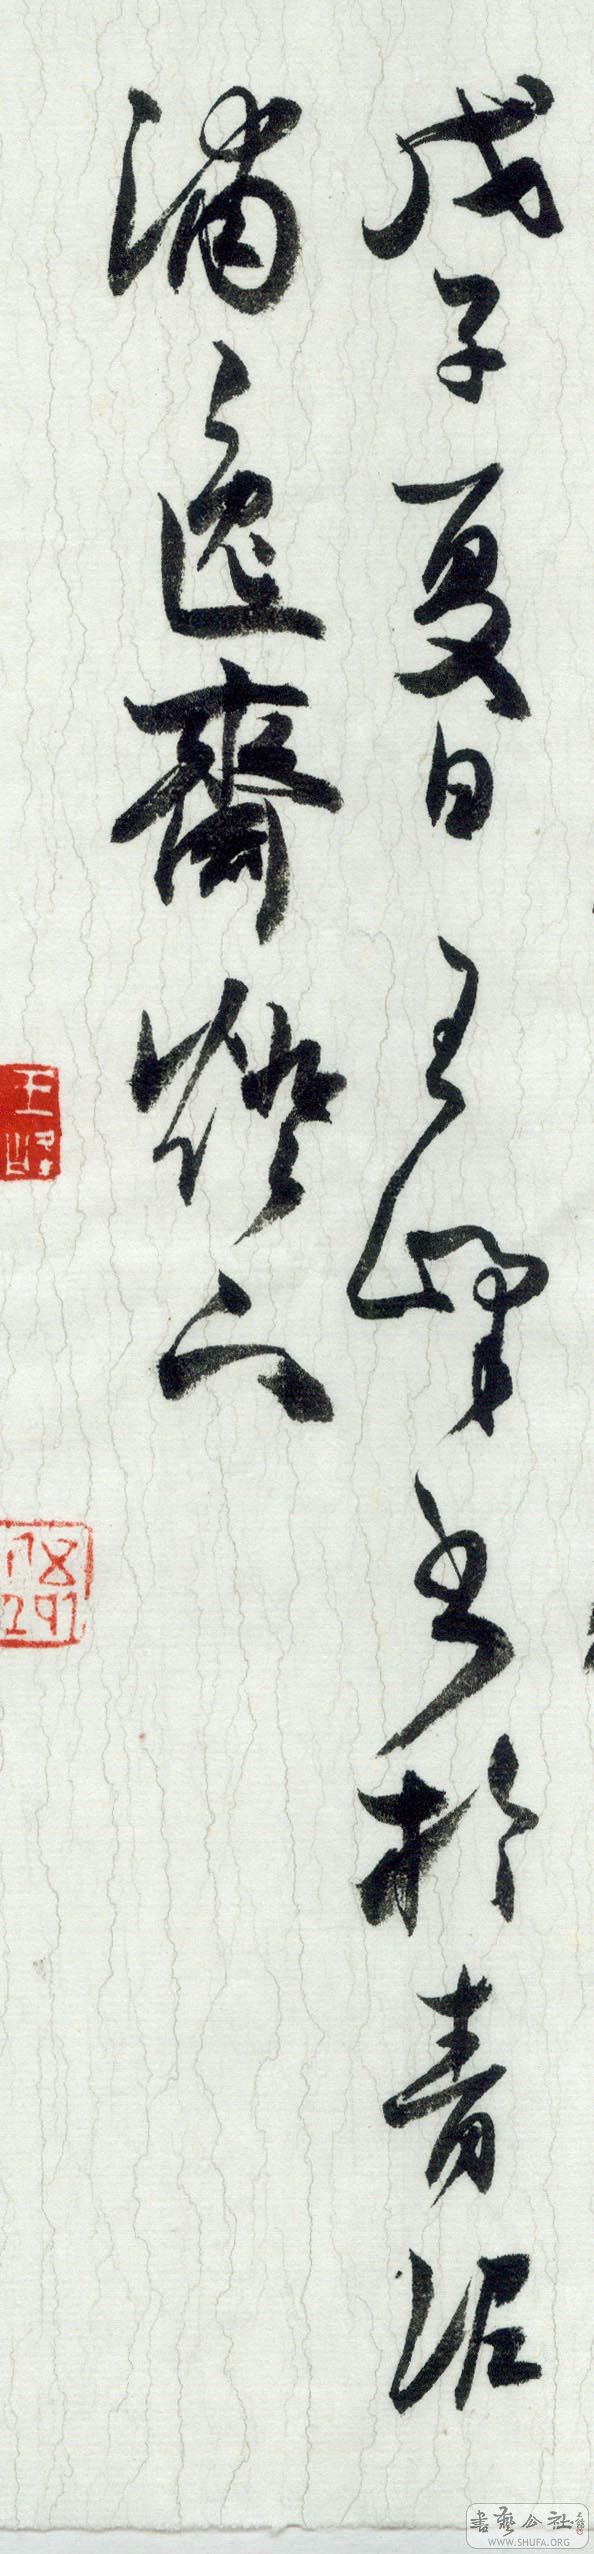 戊子夏日王峰書於青泥
浦逸齋燈下
王峰
書藝公社
WWW.SHUFA.ORG